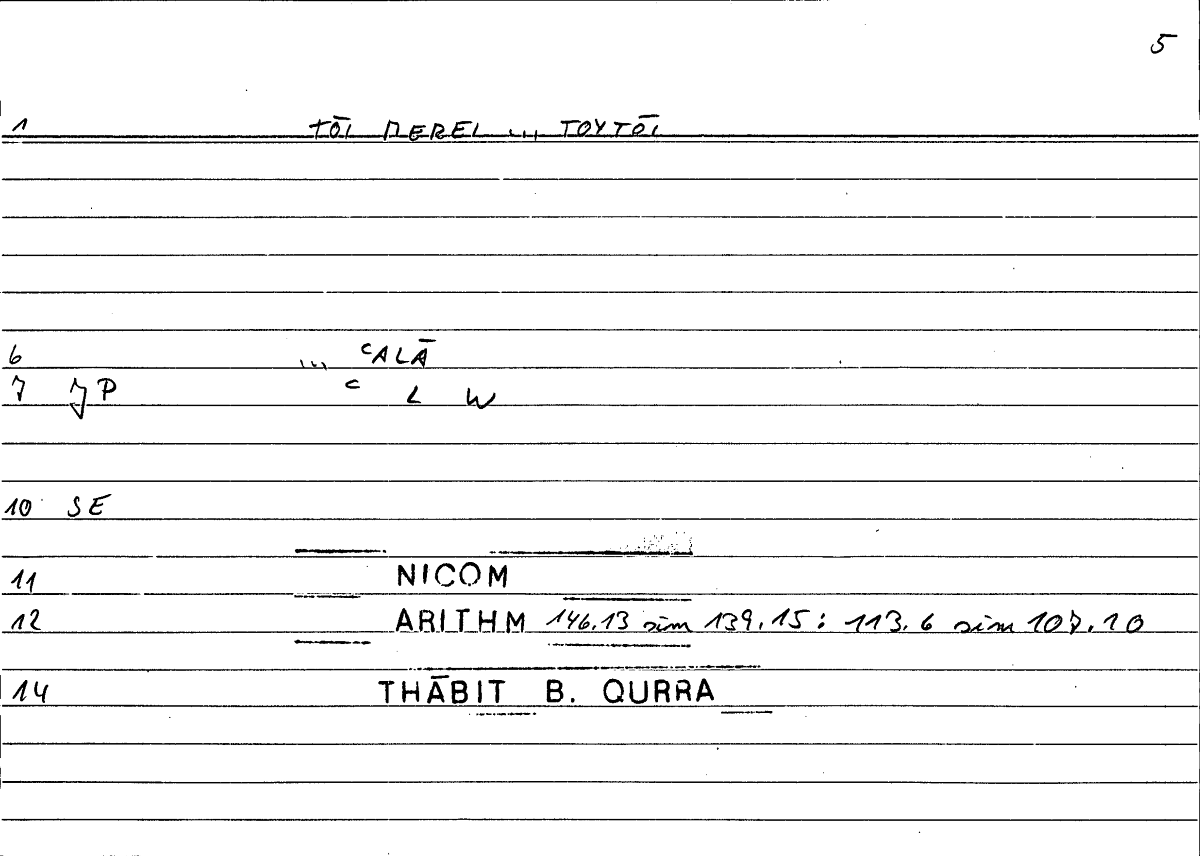 5
1 TŌI MEREI ... TOYTŌI
6 ... ᶜALĀ
7 JP ᶜ L W
10 SE
11 NICOM
12 ARITHM 146.13 sim 139.15: 113.6 sim 107.10
14 THĀBIT B. QURRA